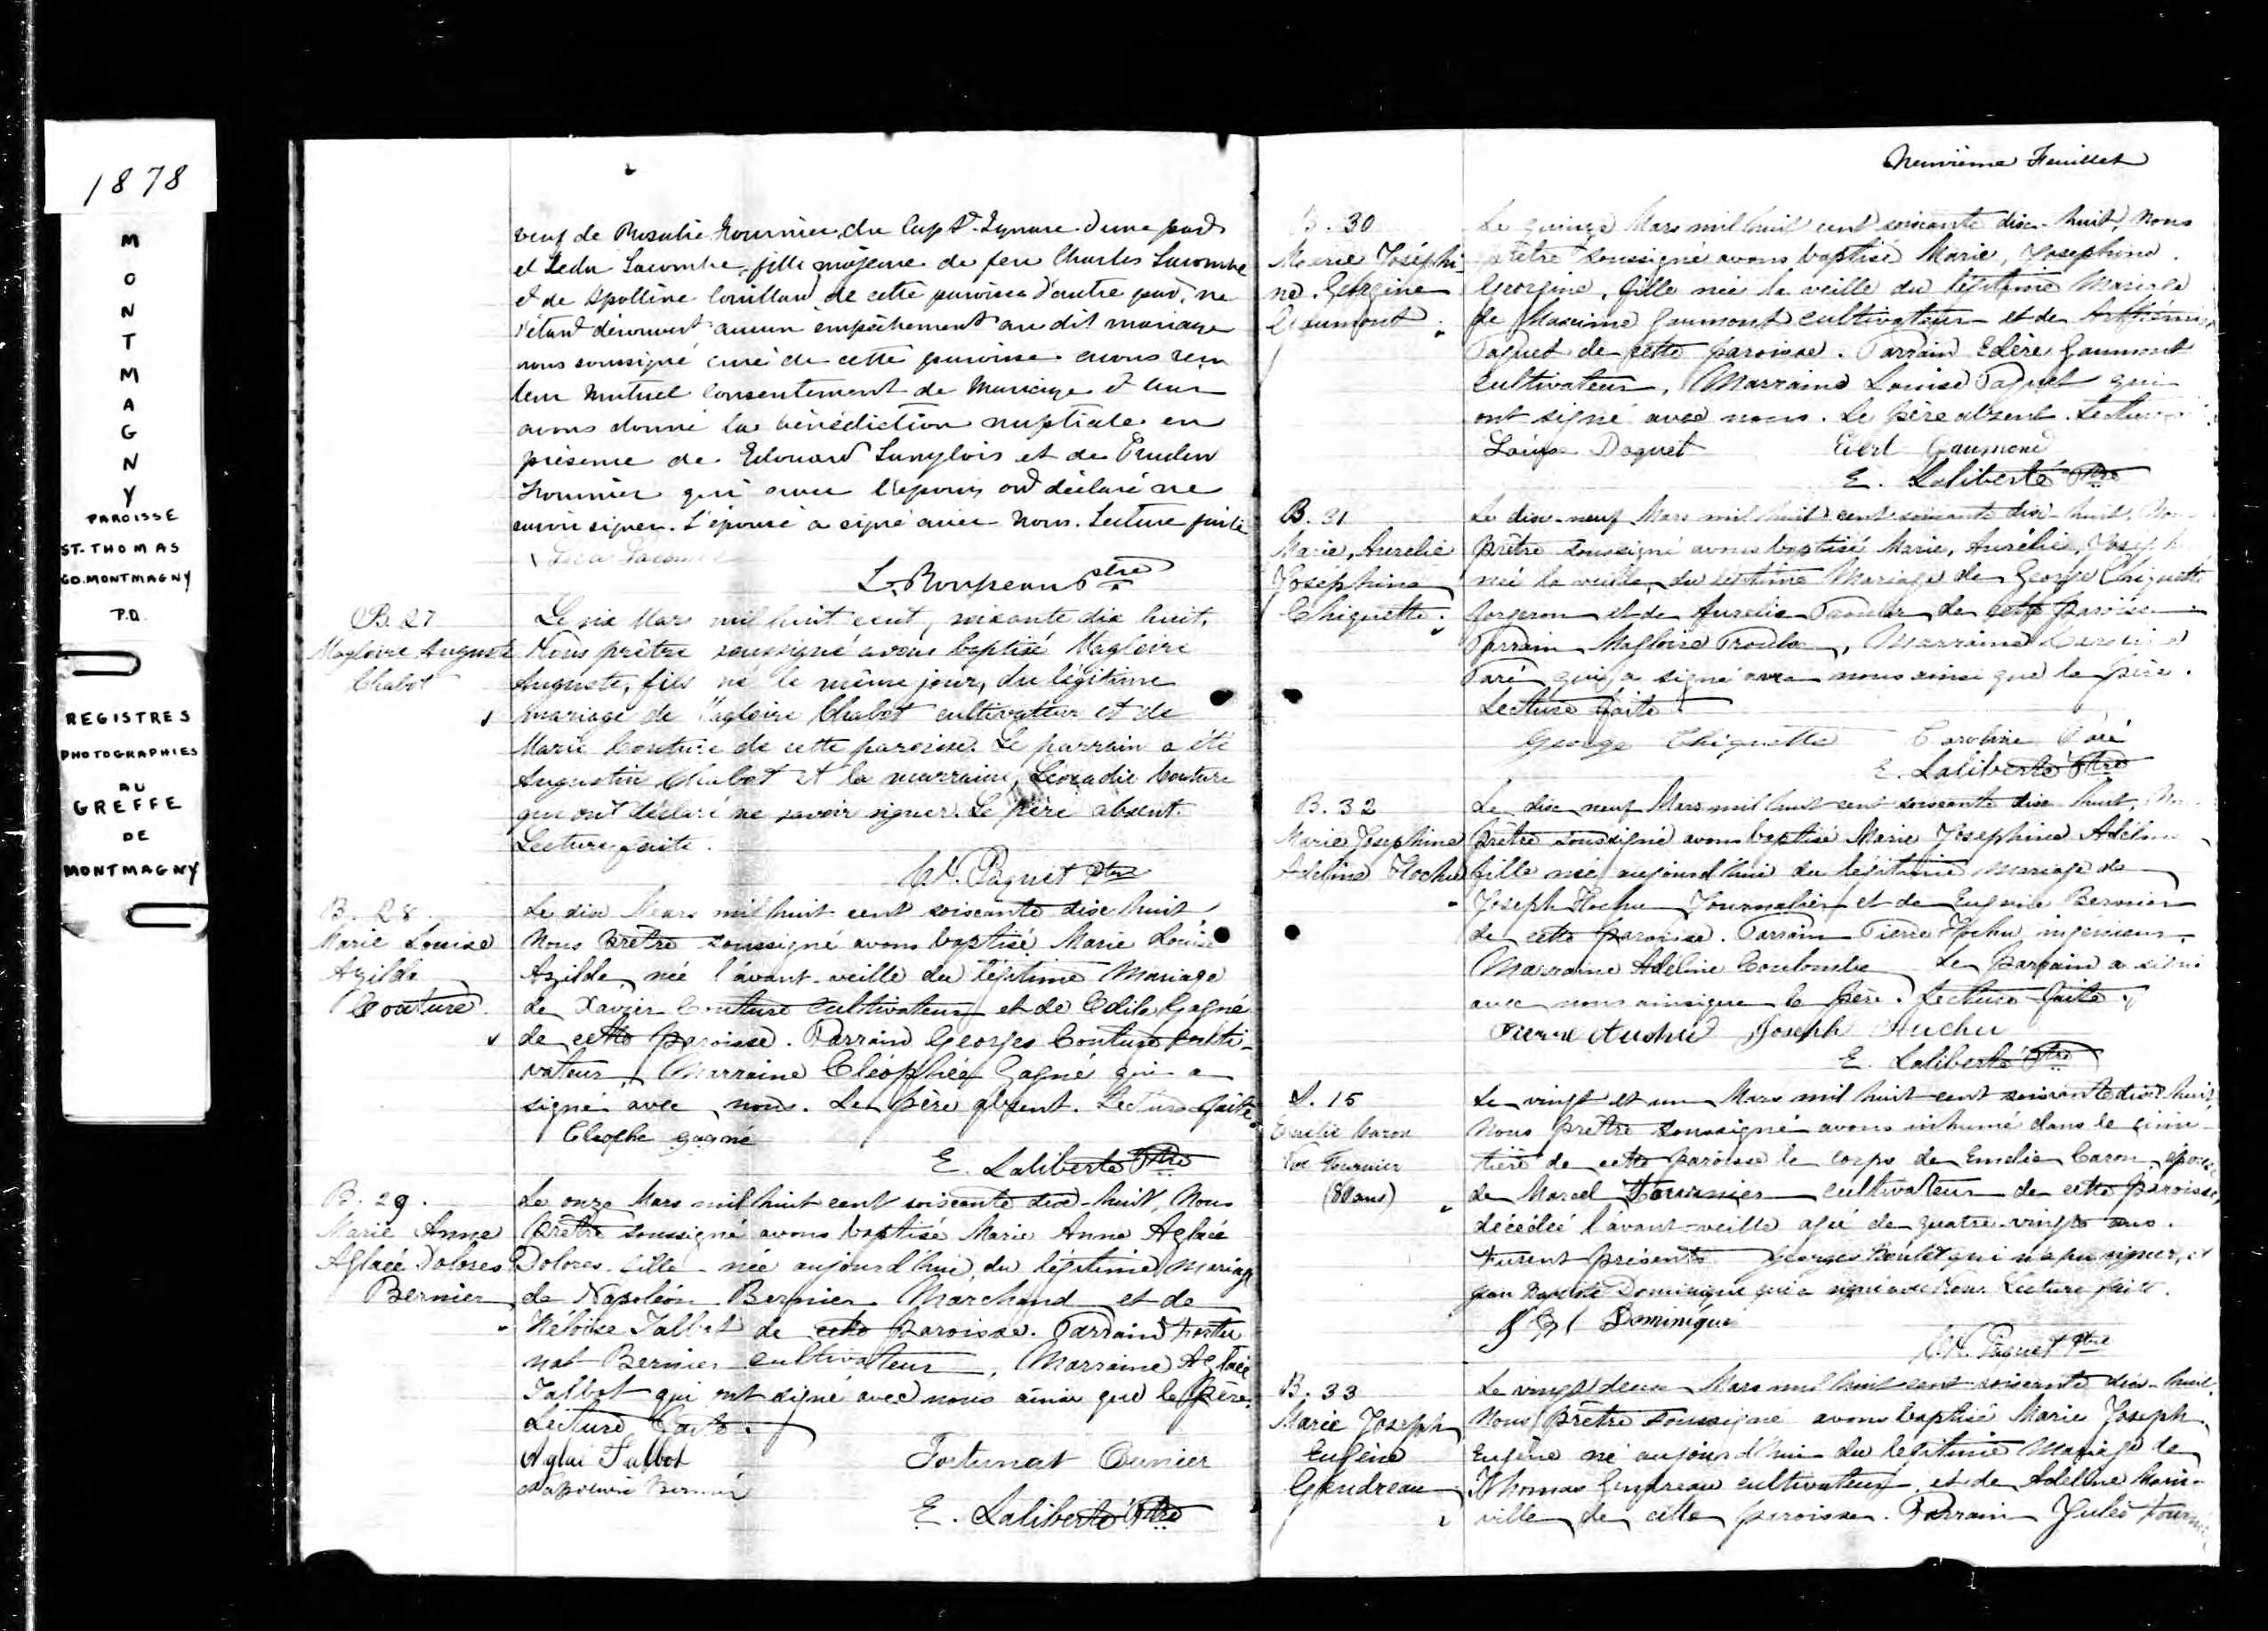 1878
MONTMAGNY
PAROISSE
ST-THOMAS
CO. MONTMAGNY
P.Q.
REGISTRES
PHOTOGRAPHIES
AU
GREFFE
DE
MONTMAGNY
veuf de Rosalie Fournier du Cap St. Ignace d'une part
et Leda Lacombe, fille majeure de feu Charles Lacombe
et de Apolline Couillard de cette paroisse d'autre part, ne
s'étant découvert aucun empêchement au dit mariage
nous soussigné curé de cette paroisse avons reçu
leur mutuel consentement de mariage et leur
avons donné la bénédiction nuptiale en
présence de Edouard Langlois et de Pruden
Fournier qui avec l'époux ont déclaré ne
savoir signer. L'épouse a signé avec nous. Lecture faite
Leda Lacombe
L. Rousseau Ptre
B. 27
Magloire Auguste
Chabot
Le six Mars mil huit cent, soixante dix huit,
Nous prêtre soussigné avons baptisé Magloire
Auguste, fils né le même jour, du légitime
mariage de Magloire Chabot cultivateur et de
Marie Couture de cette paroisse. Le parrain a été
Augustin Chabot et la marraine, Léocadie Couture
qui ont déclaré ne savoir signer. Le père absent.
Lecture faite.
Paquet Ptre
B. 28
Marie Louise
Azilda
Couture
Le dix Mars mil huit cent soixante dix huit,
Nous prêtre soussigné avons baptisé Marie Louise
Azilda, née l'avant-veille du légitime Mariage
de Xavier Couture cultivateur et de Odile Gagné
de cette paroisse. Parrain Georges Couture culti-
vateur, Marraine Cléophée Gagné qui a
signé avec nous. Le père absent. Lecture faite.
Cleophe gagné
E. Laliberté Ptre
B. 29.
Marie Anne
Aglaée Dolores
Bernier
Le onze Mars mil huit cent soixante dix-huit, Nous
prêtre soussigné avons baptisé Marie Anne Aglaée
Dolores fille née aujourd'hui, du légitime Mariage
de Napoléon Bernier Marchand et de
Héloïse Talbot de cette paroisse. Parrain Fortu
nat Bernier cultivateur, Marraine Aglaée
Talbot qui ont signé avec nous ainsi que le père.
Lecture faite.
Aglaé Talbot Fortunat Bernier
Napoleon Bernier
E. Laliberté Ptre
Neuvième Feuillet
B. 30
Marie Joséphi
ne. Georgine
Gaumont
Le quinze Mars mil huit cent soixante dix-huit, Nous
prêtre soussigné avons baptisé Marie, Josephine.
Georgine, fille née la veille du légitime Mariage
de Maxime Gaumont cultivateur et de
Paquet de cette paroisse. Parrain Gaumont
cultivateur, Marraine Louise Paquet qui
ont signé avec nous. Le père absent. Lecture
Louise Paquet Gaumond
E. Laliberté Ptre
B. 31
Marie, Aurelie
Joséphine
Chiquette.
Le dix-neuf Mars mil huit cent soixante dix-huit, Nous
prêtre soussigné avons baptisé Marie, Aurélie, Joseph
née la veille, du légitime Mariage de George Chiquette
forgeron et de Aurelie Proulx de cette paroisse
Parrain Magloire Proulx, Marraine Caroline
Paré qui a signé avec nous ainsi que le père.
Lecture faite
George Chiquette Caroline Paré
E. Laliberté Ptre
B. 32
Marie Josephine
Adeline Hochu
Le dix neuf Mars mil huit cent soixante dix huit, Nous
prêtre soussigné avons baptisé Marie Josephine Adeline
fille née aujourd'hui du légitime mariage de
Joseph Hochu Journalier et de Eugenie Bernier
de cette paroisse. Parrain Pierre Hochu ingénieur,
Marraine Adeline Coulombe Le parrain a signé
avec nous ainsi que le père. Lecture faite.
Pierre Auchu Joseph Auchu
E. Laliberté Ptre
S. 15
Emelie Caron
Fournier
(80 ans)
Le vingt et un Mars mil huit cent soixante dix huit,
Nous prêtre soussigné avons inhumé dans le cime-
tière de cette paroisse le corps de Emelie Caron, épouse
de Marcel Fournier cultivateur de cette paroisse,
décédée l'avant-veille agée de quatre-vingts ans.
Furent présents Georges Boulet qui n'a pu signer, et
Jean Baptiste Dominique qui a signé avec nous. Lecture faite.
J Bt Dominique
Paquet Ptre
B. 33
Marie Joseph
Eugène
Gendreau
Le vingt deux Mars mil huit cent soixante dix-huit,
Nous prêtre soussigné avons baptisé Marie Joseph
Eugène né aujourd'hui du legitime Mariage de
Thomas Gendreau cultivateur et de Adeline Morin-
ville de cette paroisse. Parrain Jules Fournier